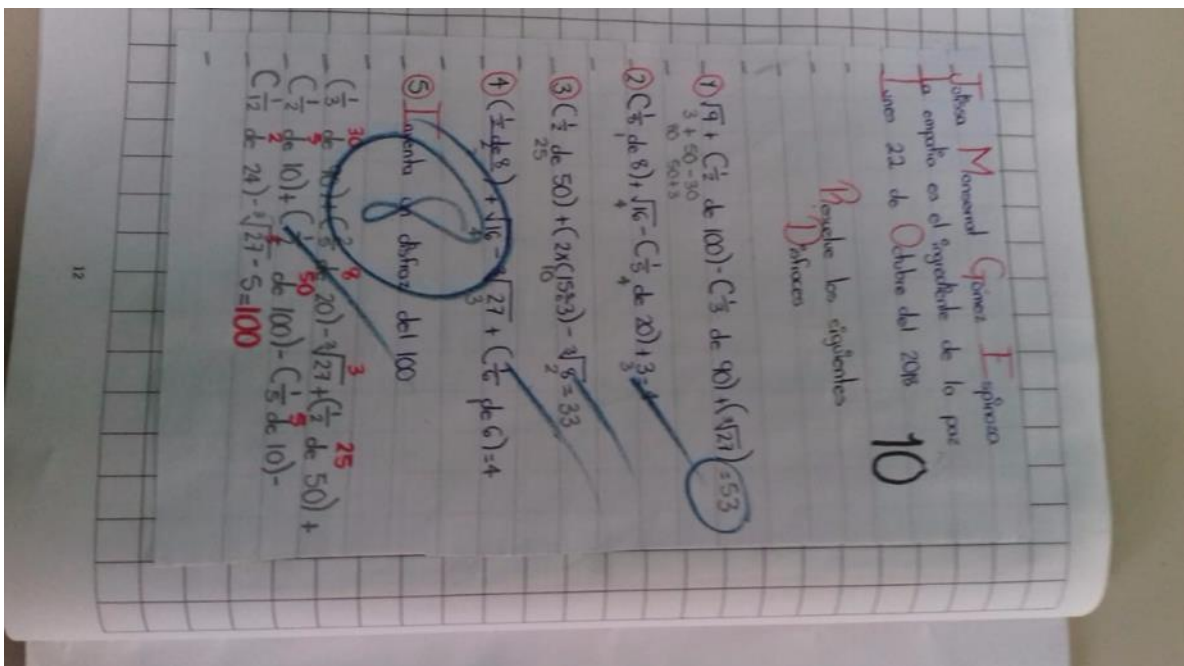 Monserrat Gómez Espinoza
La empatía es el ingrediente de la paz
Lunes 22 de Octubre del 2018
10
Resuelve los siguientes
Disfraces
① √9 + (1/2 de 100) - (1/3 de 90) + (∛27) = 53
3 + 50 - 30
② (1/8 de 8) + √16 - (1/5 de 20) + 3 = 4
1 4 4 3
③ (1/2 de 50) + (2x(15÷3) - ∛8 = 33
25 10 2
④ (1/2 de 8) + √16 - ∛27 + (1/6 de 6) = 4
4 3
⑤ Inventa un disfraz del 100
30 8 3 25
(1/3 de 90) + (2/5 de 20) - ∛27 + (1/2 de 50) +
5 50 5
(1/2 de 10) + (1/2 de 100) - (1/5 de 10) -
2
(1/12 de 24) - ∛27 - 5 = 100
12